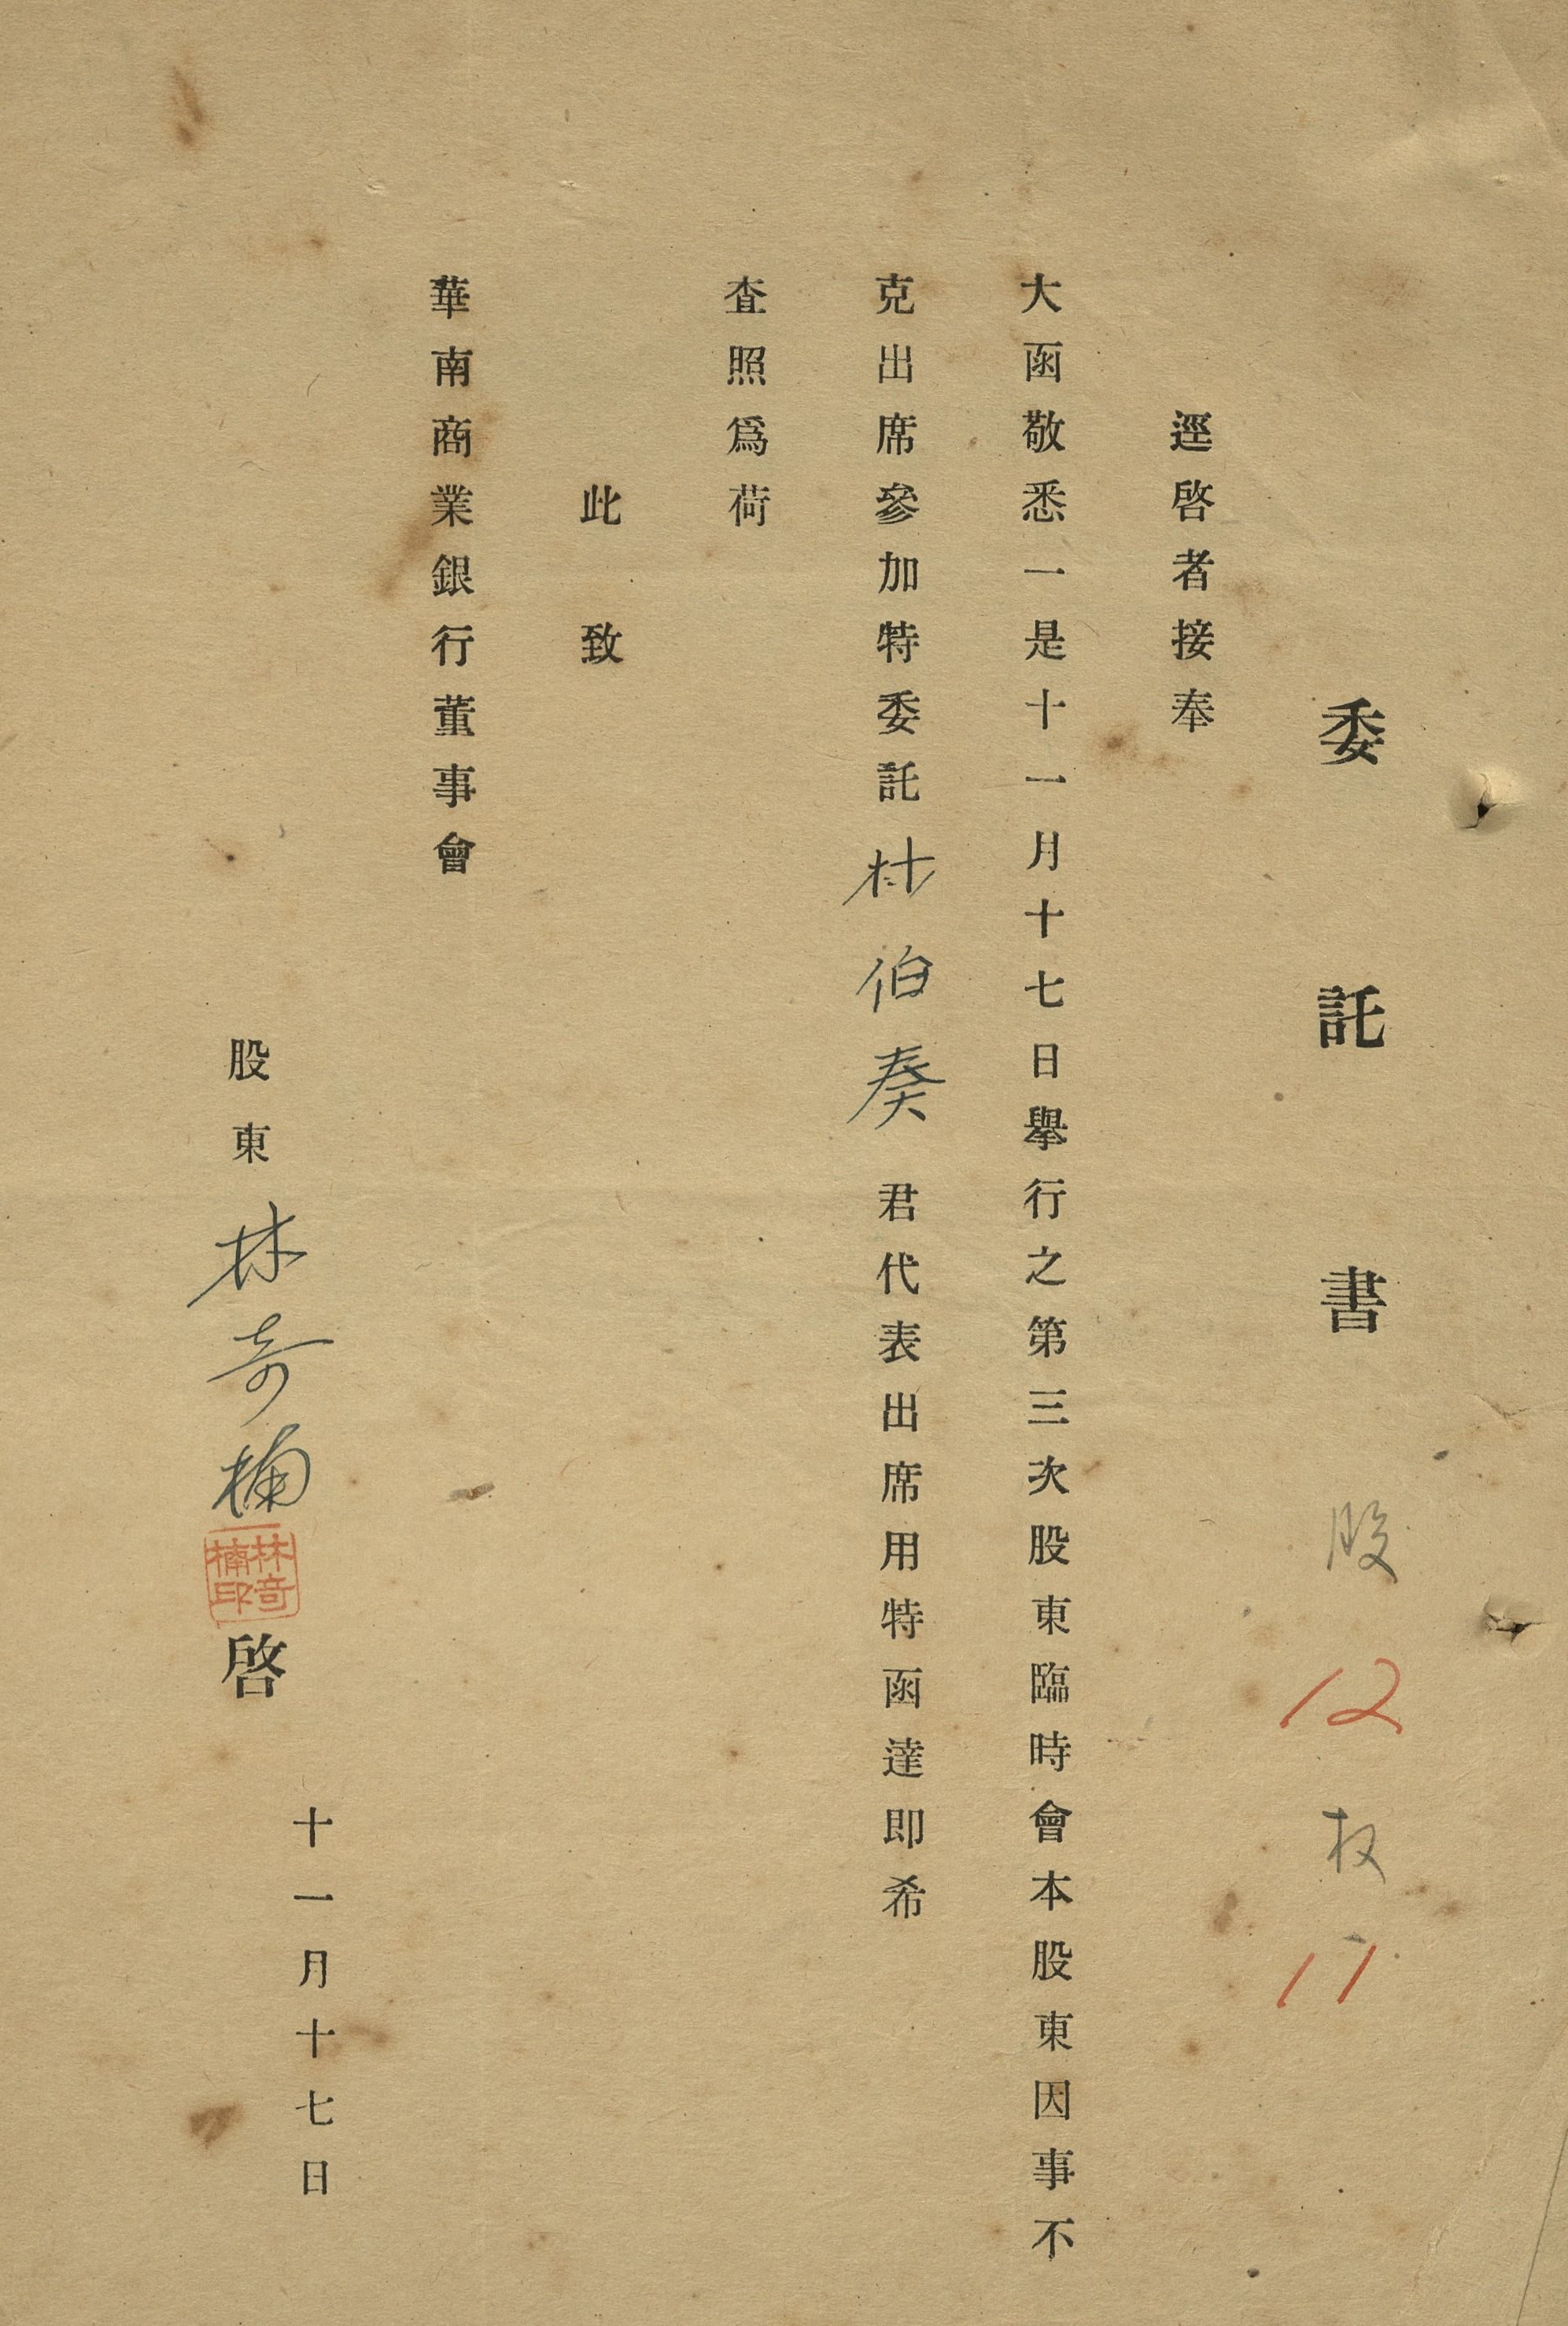 委託書 股 12 权 11
逕啓者接奉
大函敬悉一是十一月十七日舉行之第三次股東臨時會本股東因事不
克出席參加特委託杜伯奏君代表出席用特函達即希
査照爲荷
此致
華南商業銀行董事會
十一月十七日
股東林奇楠啓
林奇楠印